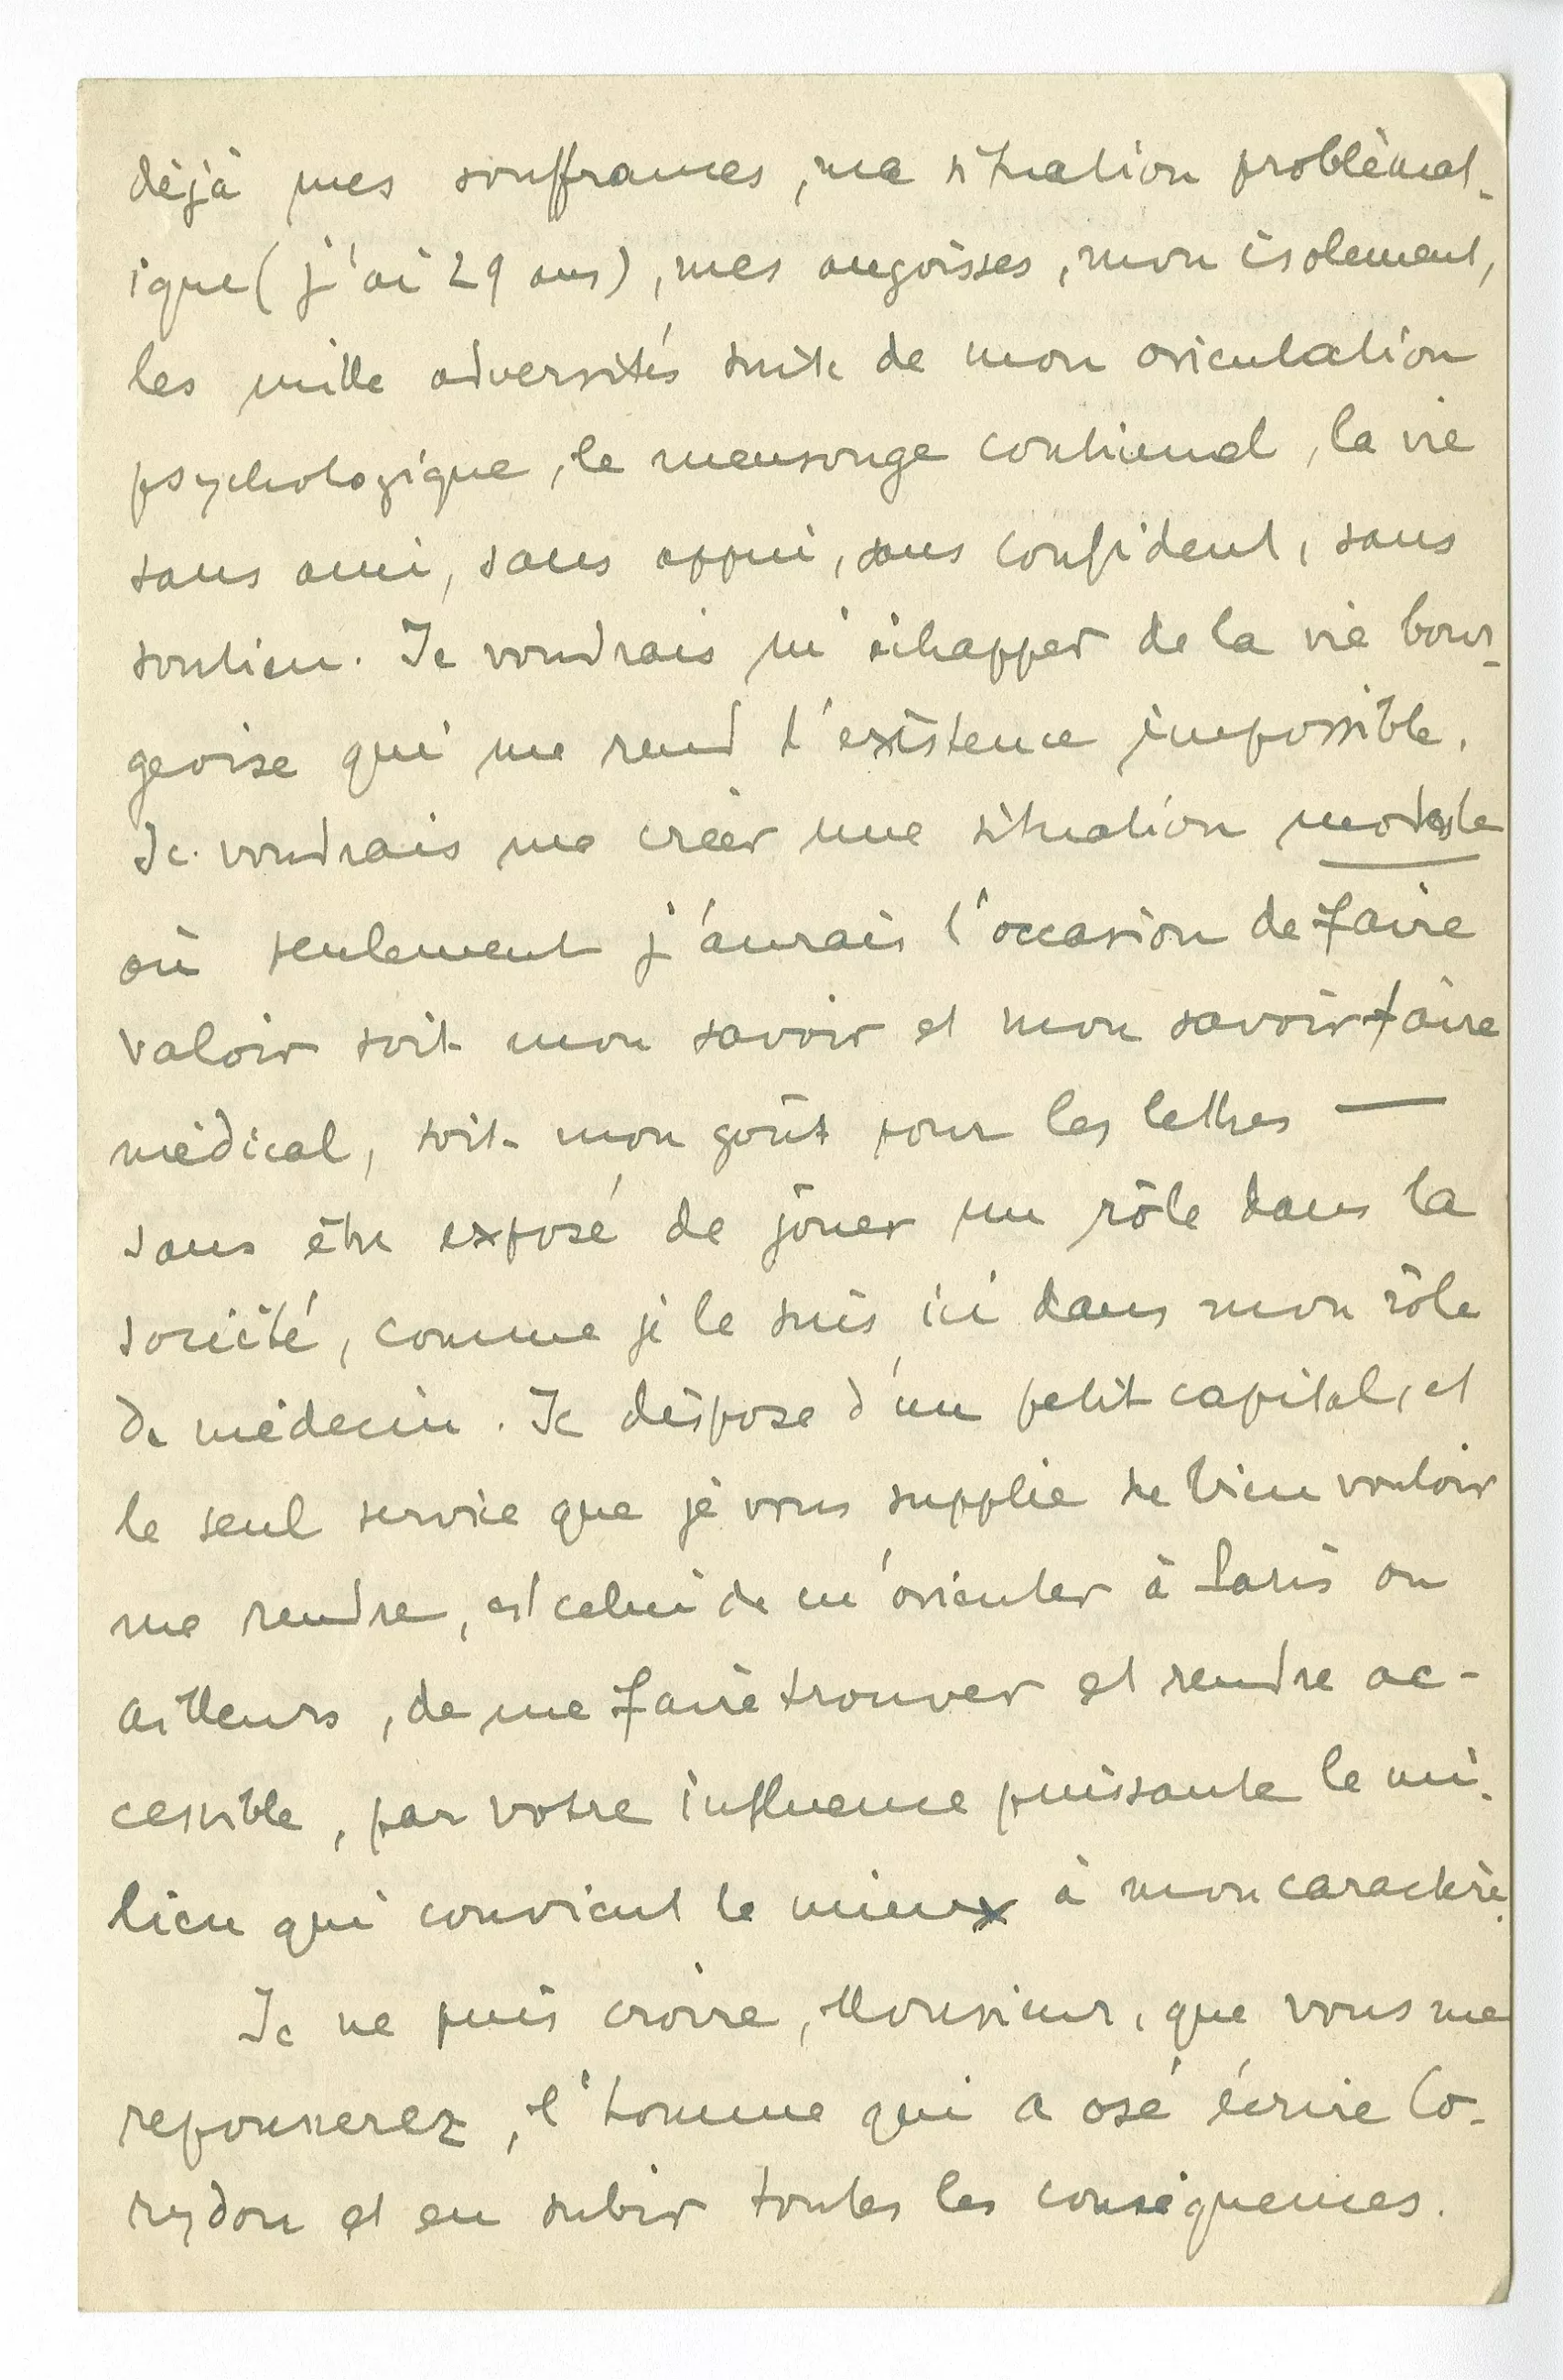 déjà mes souffrances, ma situation problémat-
ique (j'ai 29 ans), mes angoisses, mon isolement,
les mille adversités suite de mon orientation
psychologique, le mensonge continuel, la vie
sans ami, sans appui, sans confident, sans
soutien. Je voudrais m'échapper de la vie bour-
geoise qui me rend l'existence impossible.
Je voudrais me créer une situation modeste
où seulement j'aurais l'occasion de faire
valoir soit mon savoir et mon savoir faire
médical, soit mon goût pour les lettres —
sans être exposé de jouer un rôle dans la
société, comme je le suis ici dans mon rôle
de médecin. Je dispose d'un petit capital, et
le seul service que je vous supplie de bien vouloir
me rendre, est celui de m'orienter à Paris ou
ailleurs, de me faire trouver et rendre ac-
cessible, par votre influence puissante le mi-
lieu qui convient le mieux à mon caractère.
Je ne puis croire, Monsieur, que vous me
repousserez, l'homme qui a osé écrire Co-
rydon et en subir toutes les conséquences.